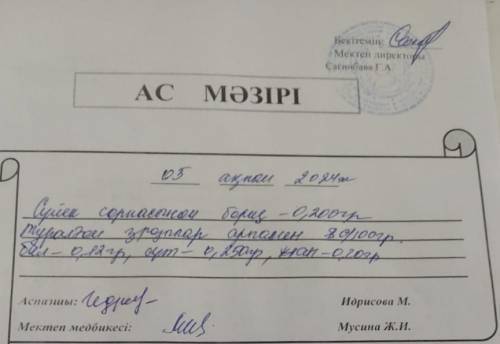 Бекітемін:
Мектеп директоры
Сагинбаева Г.А.
АС МӘЗІРІ
05 ақпан 2024ж
Сүйек сорпасынан борщ - 0,200гр
арпамен 80/100гр.
бал - 0,12гр, сүт - 0,250гр, нан - 0,70гр
Аспазшы: Идрисова М.
Мектеп медбикесі: Мусина Ж.И.